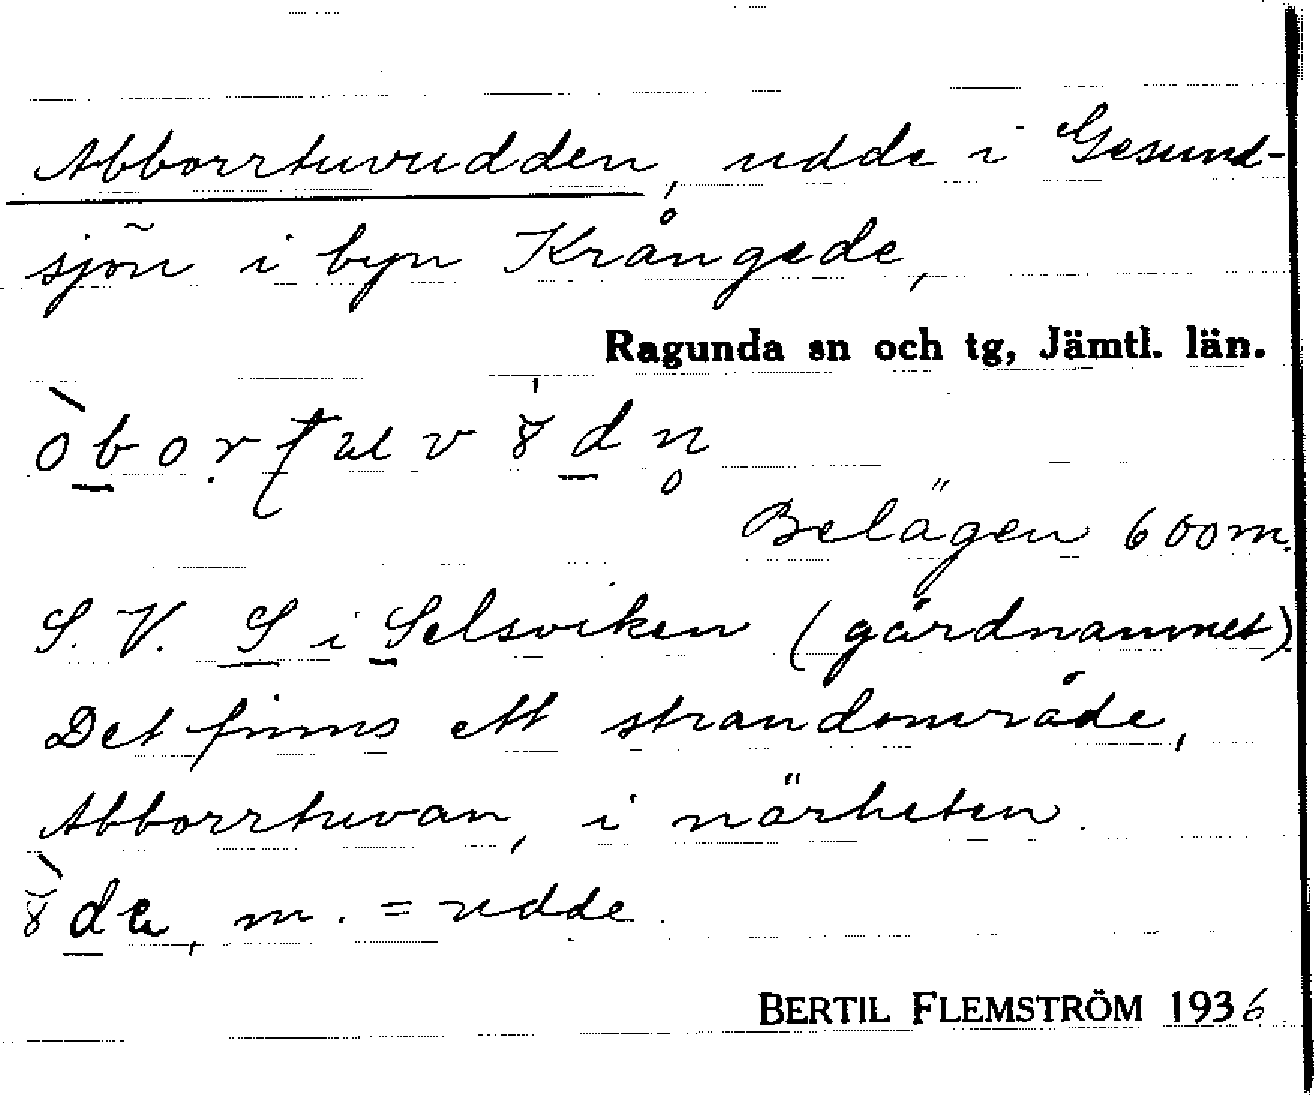 Abborrtuvudden, udde i Gesund-
sjön i byn Krångede,
Ragunda sn och tg, Jämtl. län.
Belägen 600 m.
S. V. S i Selsviken (gårdnamnet).
Det finns ett strandområde,
Abborrtuvan, i närheten.
m. = udde.
BERTIL FLEMSTRÖM 1936